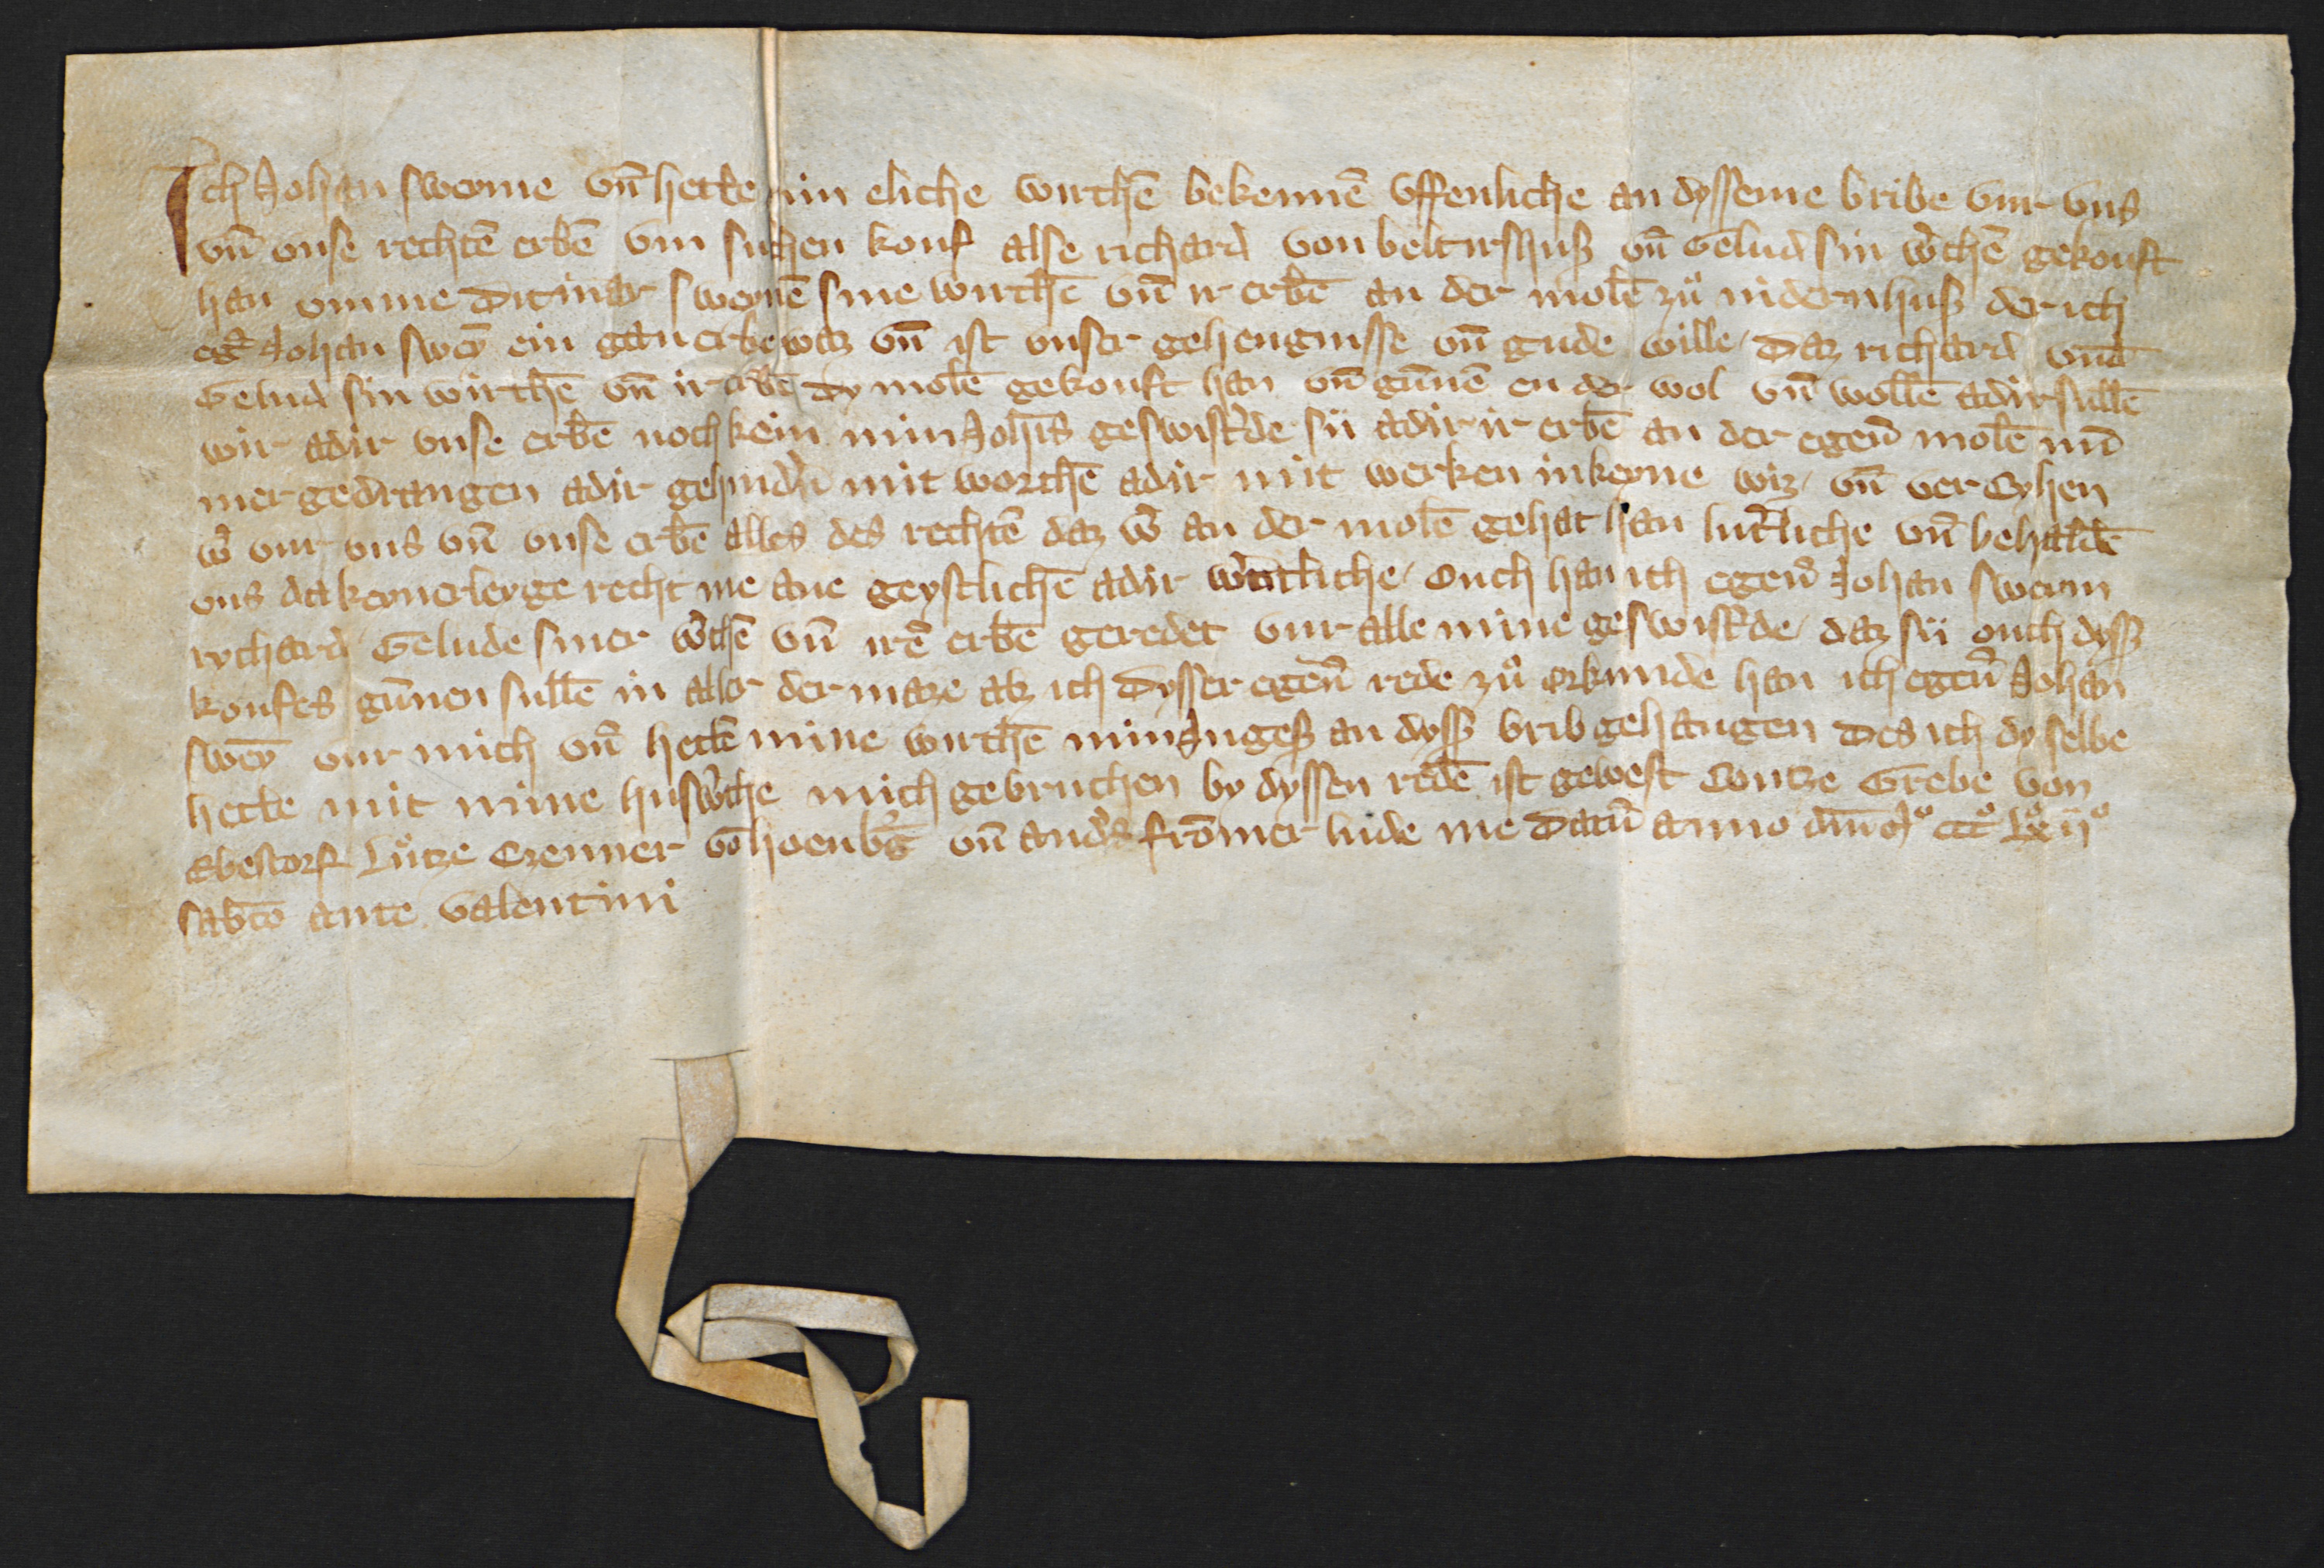 Ich Johan sweyme vn̄ hetke min eliche wirthē bekennē vffenliche an dysseme bribe vur vns
vn̄ vnse rechtē erbē vm suchen kouf alse richard von beltirshuß vn̄ Gelud sin w'thē gekouft
han vmme Ditmar sweymē sine wirthē vn̄ ir erbē an der molē zuͦ nidernhuß der ich
egē Johan sweȳ ein gan erbe waz vn̄ ist vnser gehengnisse vn̄ gude wille / Daz richard vnd
Gelud sin wirthē vn̄ ir erbē dy molē gekouft han vn̄ gūnē en der wol vn̄ wollē adir sullē
wir adir vnse erbē noch kein min Joh̄is geswist'de sii adir ir erbē an der egen̄ molē nū
mer gedrangen adir gehind'n mit worthē adir mit werken inkeyne wiz / vn̄ ver Cyhen
w' vur vns vn̄ vnse erbē alles des rechtē daz w' an der molē gehat han lut'liche vn̄ behaldē
vns da keynerleyge recht me ane geystlichē adir w'ntliche / Ouch han ich egen̄ Johan sweym
rychard Gelude siner w'thē vn̄ irē erbē geredet vur alle mine geswist'de / daz sii ouch dyß
koufes gūnen sullē in aller der maze alz ich Dysser egen̄ rede zuͦ orkunde han ich egen̄ Johan
sweȳ vur mich vn̄ hetkē mine wirthē min Ingeß an dyß brib gehangen Des ich dy selbe
hetke mit mime husw'the mich gebruchen by dyssen redē ist gewest Contze Grebe von
Ebestorf Luͦtze Czenner vō hoenb'g vn̄ and's frōmer lude me Datū anno dm̄ Mͦ cccͦ Lxͦ iiͦ
sabb̄to ante valentini